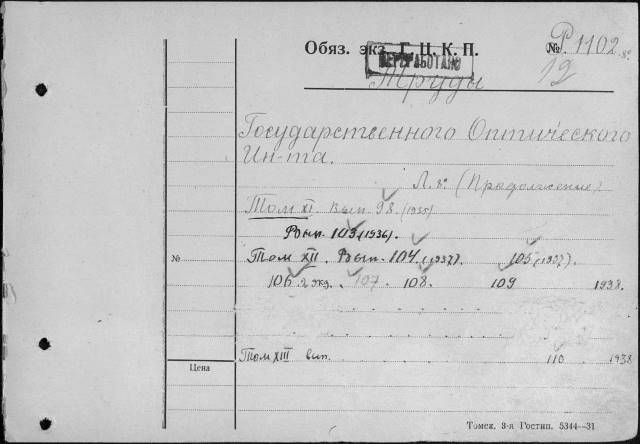 Обяз. экз. Г. Ц. К. П.
№ Р1102 8º
ПЕРЕРАБОТАНО
12
Труды
Государственного Оптического
Ин-та.
Л. 8º (Продолжение)
Том XI. Вып. 98. (1935)
Вып. 103 (1936).
№ Том XII. Вып. 104 (1937). 105 (1937).
106 2 экз. 107 108 109 1938.
Том XIII вып. 110 1938
Цена
Томск. 3-я Гостип. 5344—31